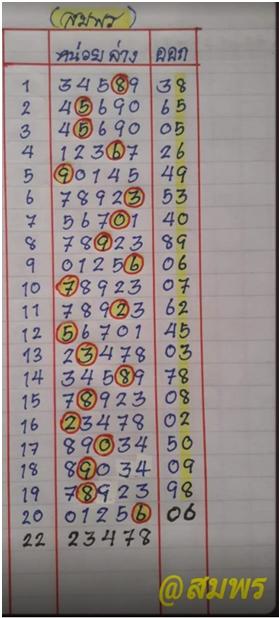 (สมพร)
หน่วยล่าง ออก
1 34589 38
2 45690 65
3 45690 05
4 12367 26
5 90145 49
6 78923 53
7 56701 40
8 78923 89
9 01256 06
10 78923 07
11 78923 62
12 56701 45
13 23478 03
14 34589 78
15 78923 08
16 23478 02
17 89034 50
18 89034 09
19 78923 98
20 01256 06
22 23478
@สมพร